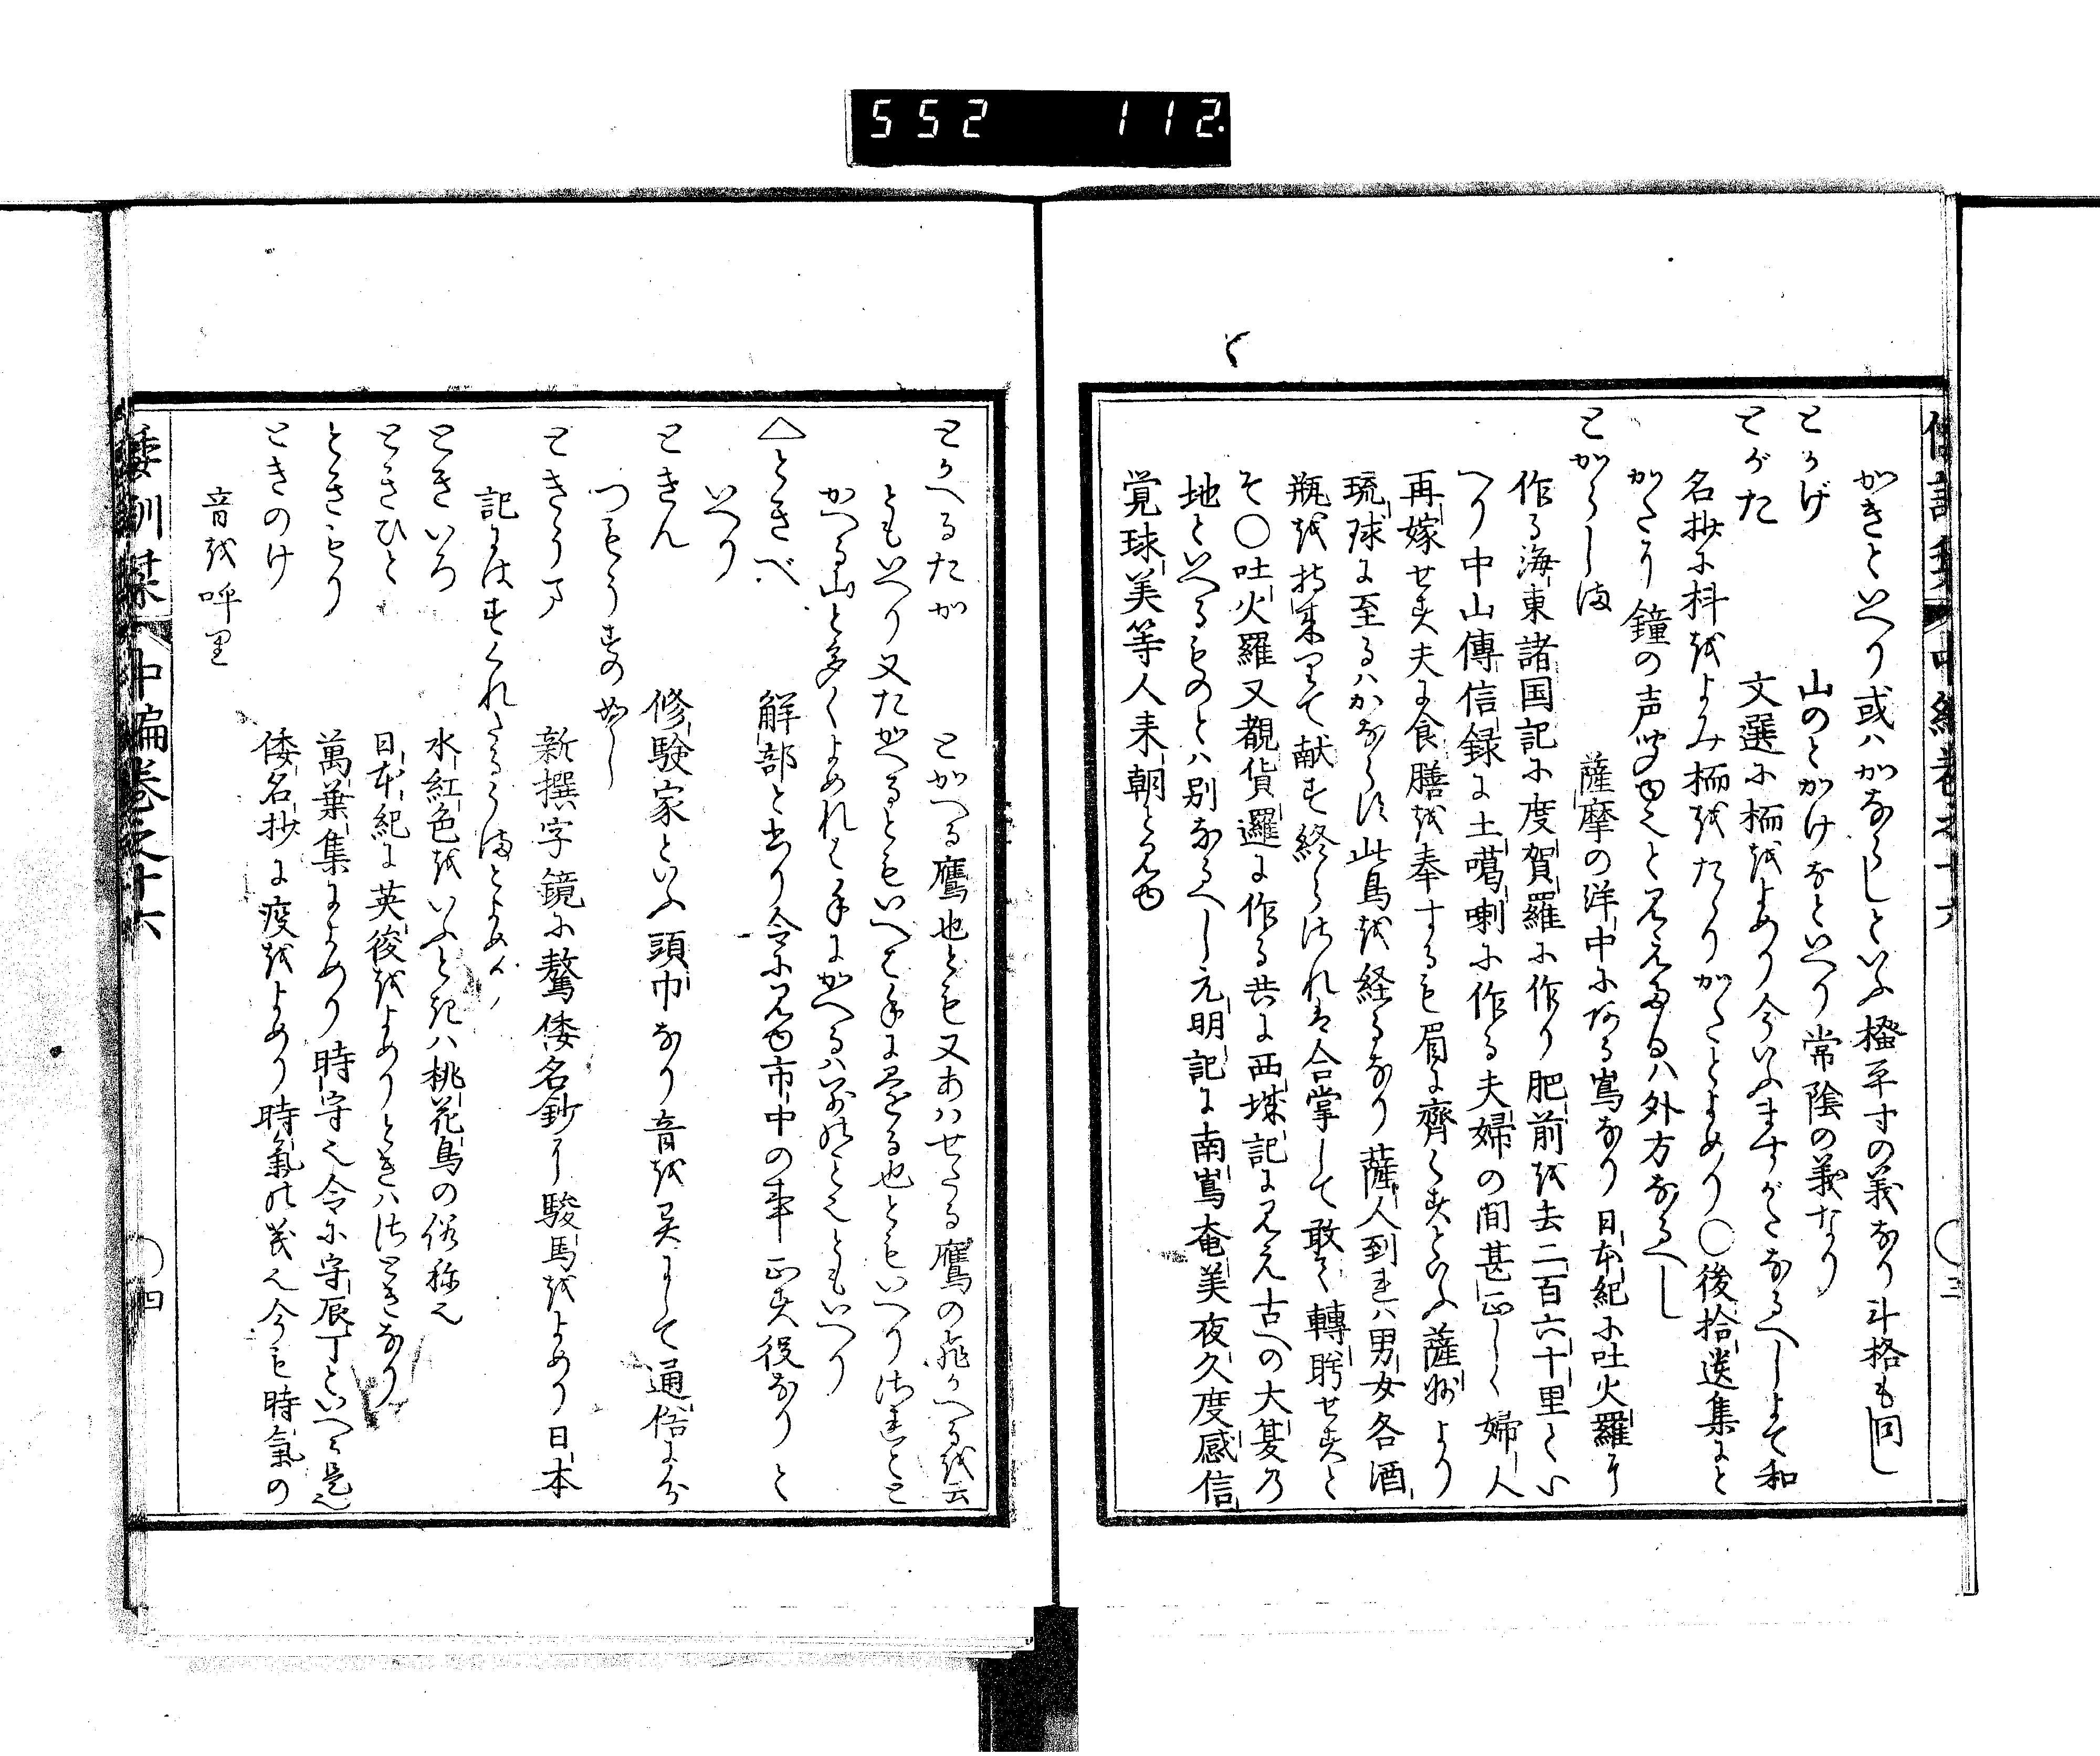 552 112.
と
がきといへり或ハかならしといふ概平すの義なり斗格も同し
とかげ 山のとかけなといへり常陰の義なり
とがた 文選に栭をよめり今いふますがたなるへしよて和
名抄に枓をよみ栭をたゝりがたとよめり〇後拾遺集にと
がたり鐘の声聞ゆ也と見えたるハ外方なるへし
とがらしま 薩摩の洋中にある嶌なり日本紀に吐火羅に
作る海東諸国記に度賀羅に作り肥前を去二百六十里とい
へり中山傳信録に土噶喇に作る夫婦の間甚正しく婦人
再嫁せす夫に食膳を奉するも眉に齊くすといふ薩州より
琉球に至るハかならす此島を経るなり薩人到れハ男女各酒
瓶を持来りて献す終らされは合掌して敢て轉眄せすと
そ〇吐火羅又覩貨邏に作る共に西域記に見え古への大夏乃
地といへるものとハ別なるへし元明記に南嶌奄美夜久度感信
覚球美等人来朝と見ゆ
倭訓栞 中編巻之十六 〇三
とかへるたか とかへる鷹也とも又あハせたる鷹の飛かへるを云
ともいへり又たかへるともいへと手に居る也ともいへりされとと
かへる山と多くよめれは手にかへるハ別のこと也ともいへり
△ときべ 解部と書り令に見ゆ市中の事正す役なりと
いへり
ときん 修験家といふ頭巾なり音を呉にして通俗に分
つもろすの如し
ときうま 新撰字鏡に驁倭名鈔に駿馬をよめり日本
記にはすくれたるうまとよめり
ときいろ 水紅色をいふとき八桃花鳥の俗称也
ときひと 日本紀に英俊をよめりときハさときなり
ときもり 萬葉集によめり時守也令に守辰丁といへる是也
ときのけ 倭名抄に疫をよめり時氣の義也今も時氣の
音を呼里
倭訓栞 中編巻之十六 〇四